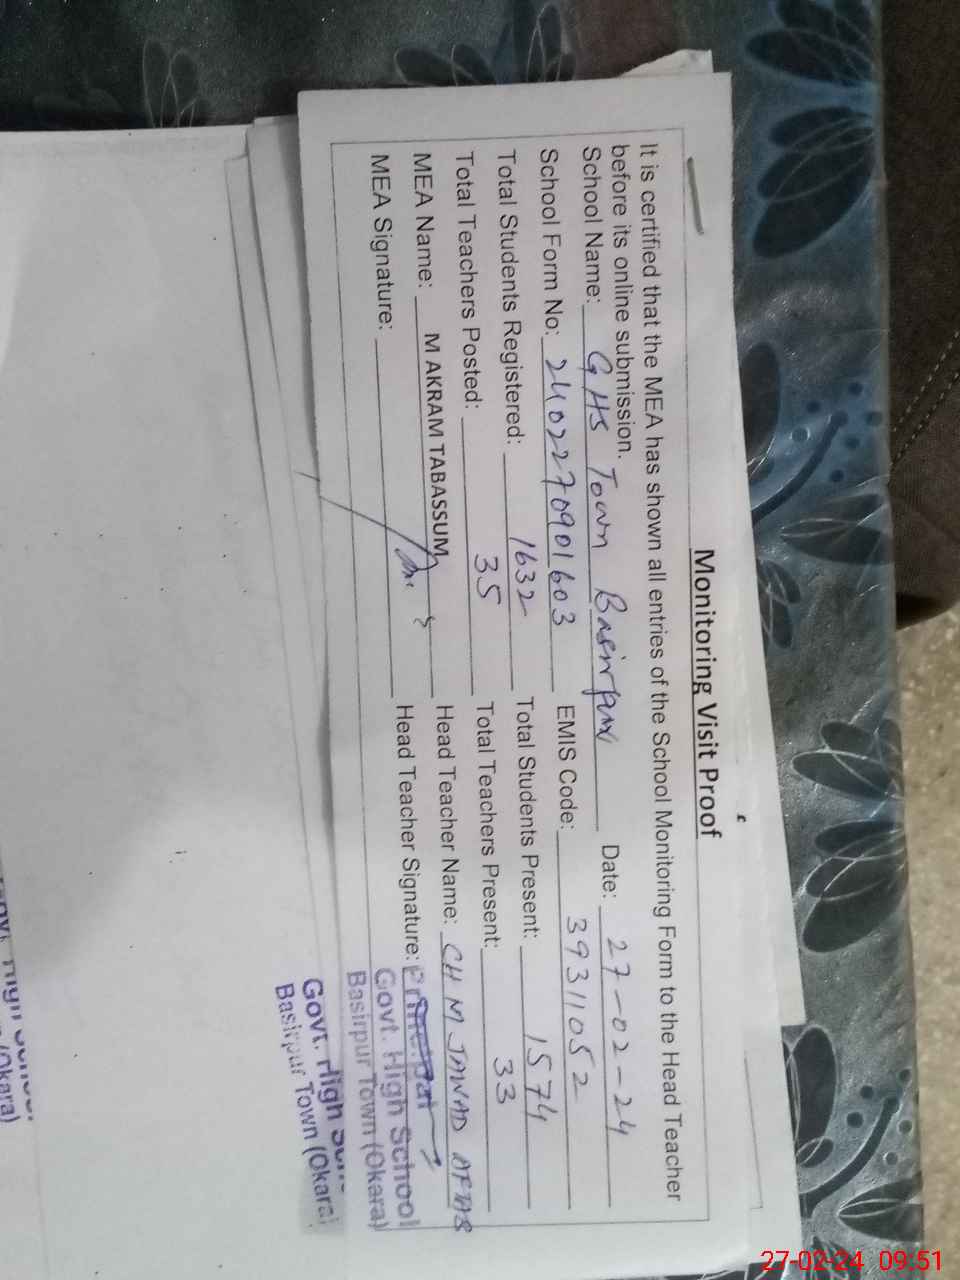 Monitoring Visit Proof
It is certified that the MEA has shown all entries of the School Monitoring Form to the Head Teacher
before its online submission.
School Name: GHS Town Basirpur Date: 27-02-24
School Form No: 2402270901603 EMIS Code: 39311052
Total Students Registered: 1632 Total Students Present: 1574
Total Teachers Posted: 35 Total Teachers Present: 33
MEA Name: M AKRAM TABASSUM Head Teacher Name: CH M JAWAD
MEA Signature: Head Teacher Signature: Principal
Govt. High School
Basirpur Town (Okara)
Govt. High
Basirpur Town (Okara)
27-02-24 09:51